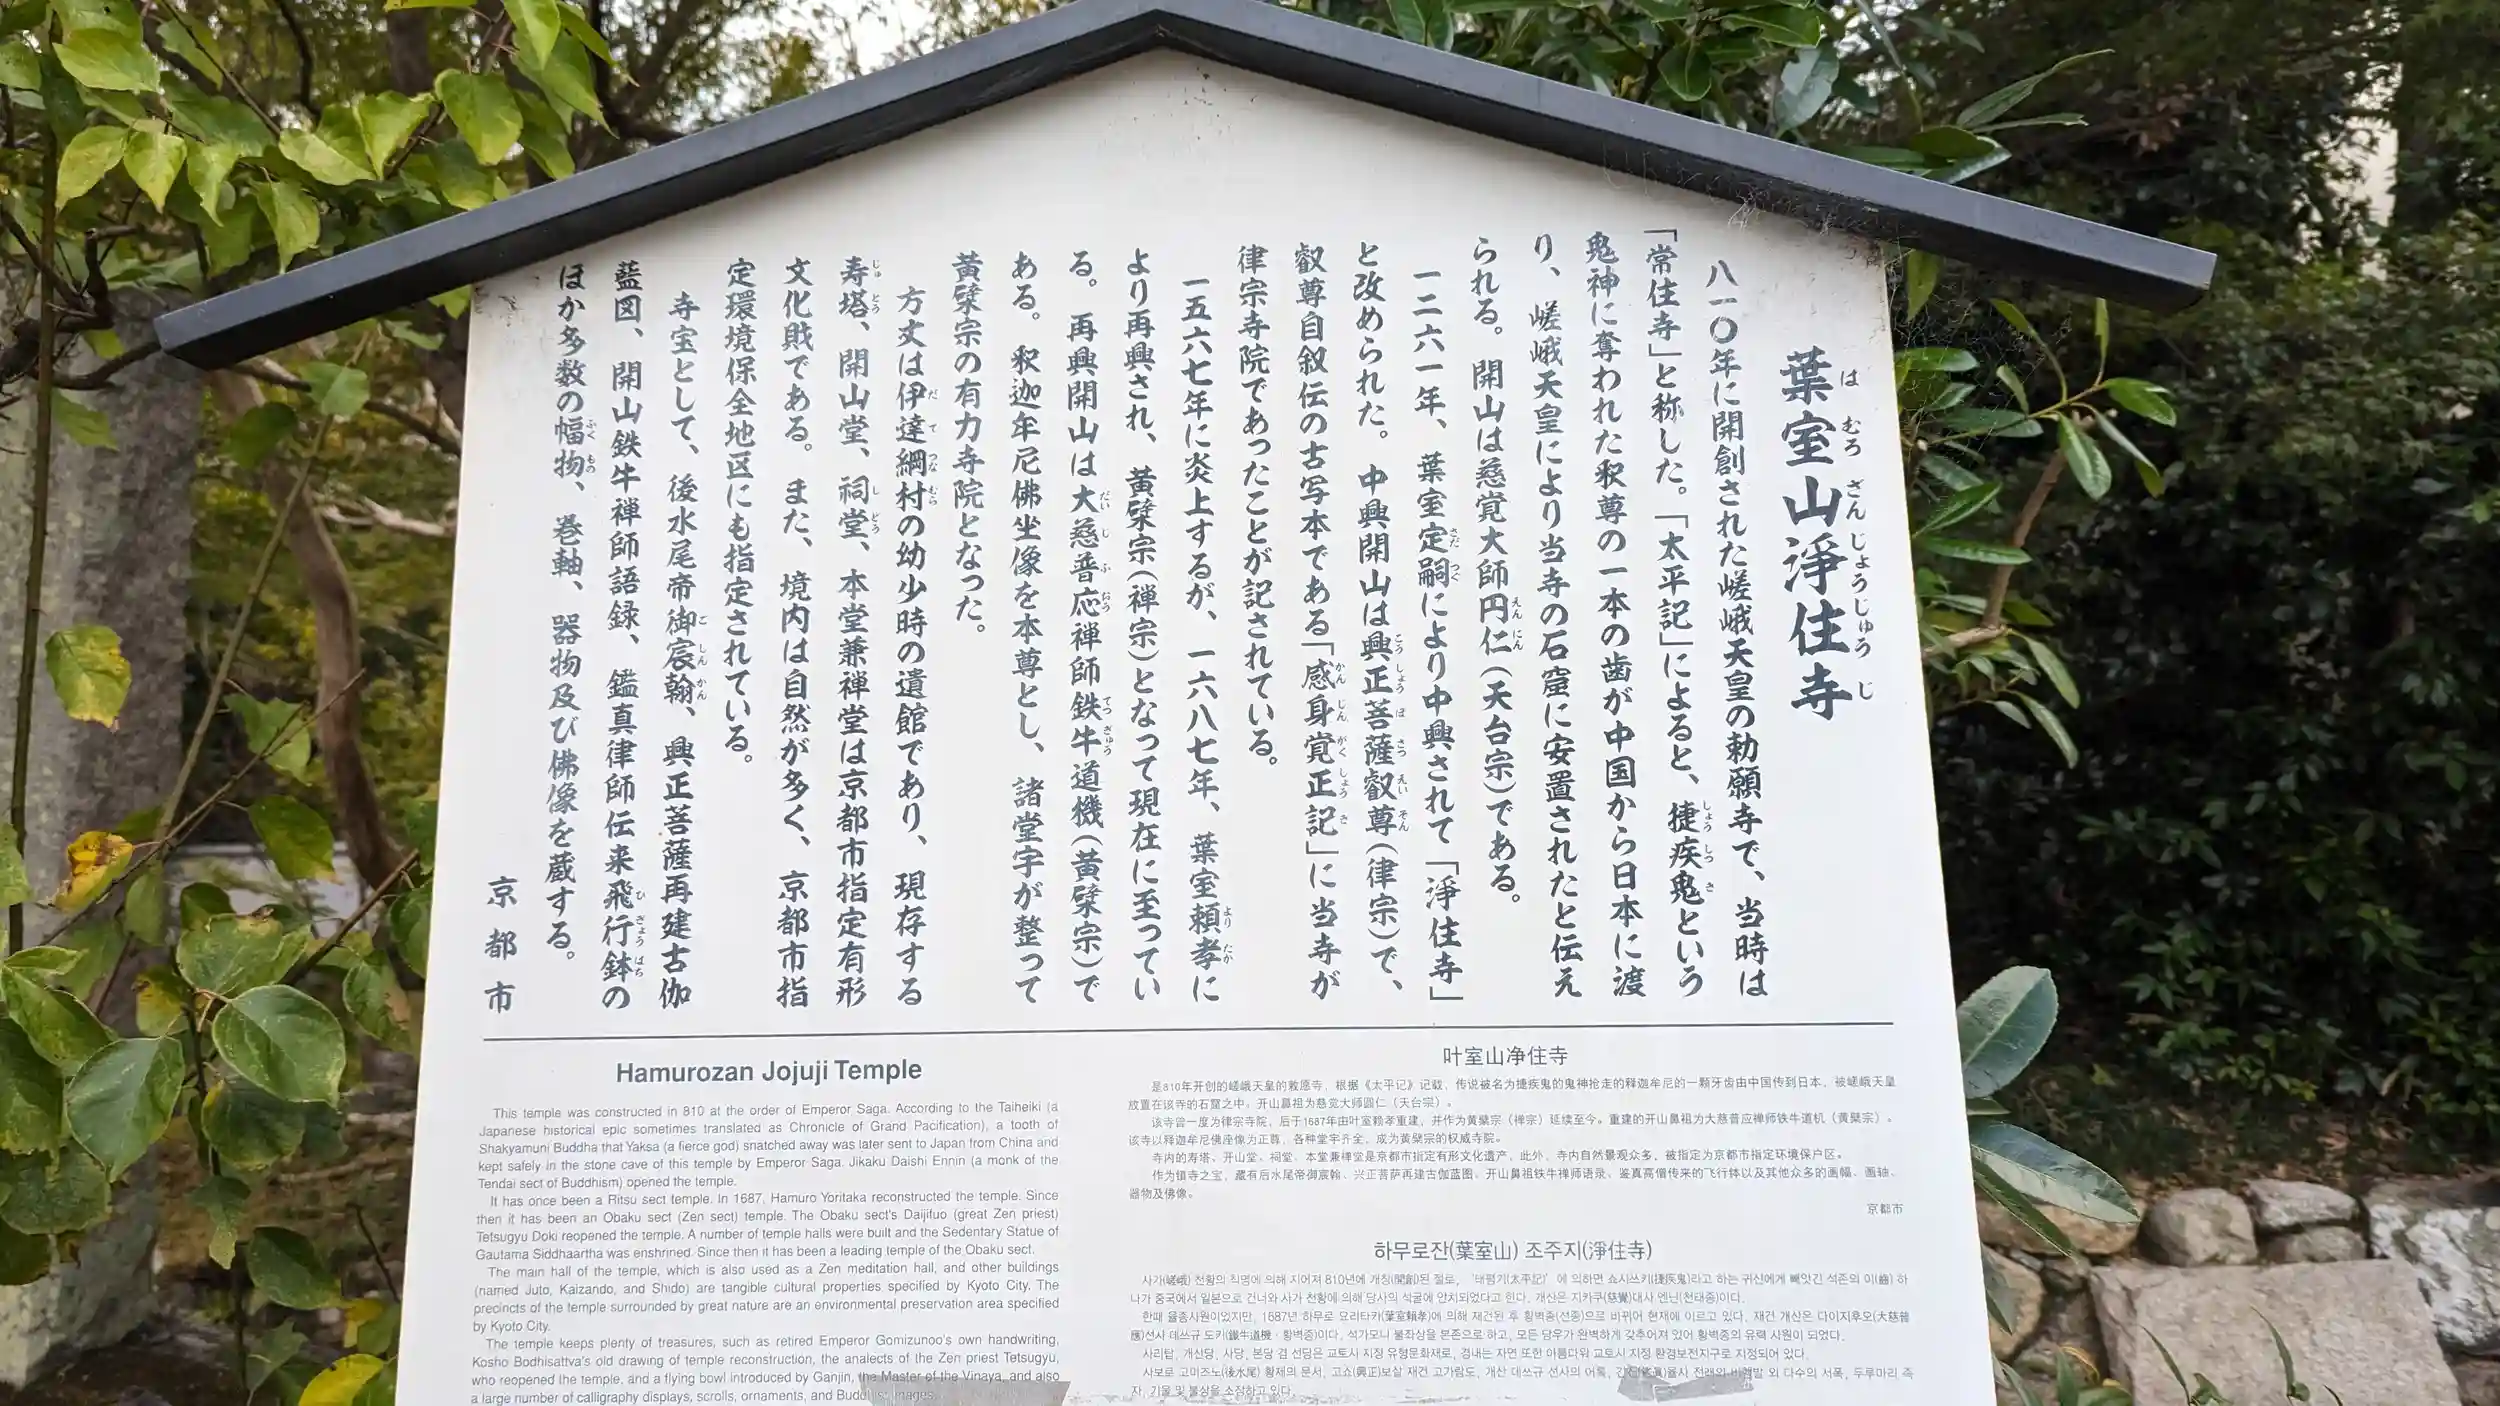 葉室山淨住寺
はむろざんじょうじゅうじ
八一〇年に開創された嵯峨天皇の勅願寺で、当時は
「常住寺」と称した。「太平記」によると、捷疾鬼という
しょうしつき
鬼神に奪われた釈尊の一本の歯が中国から日本に渡
り、嵯峨天皇により当寺の石窟に安置されたと伝え
られる。開山は慈覚大師円仁(天台宗)である。
えんにん
一二六一年、葉室定嗣により中興されて「淨住寺」
さだつぐ
と改められた。中興開山は興正菩薩叡尊(律宗)で、
こうしょうぼさつえいそん
叡尊自叙伝の古写本である「感身覚正記」に当寺が
かんじんがくしょうき
律宗寺院であったことが記されている。
一五六七年に炎上するが、一六八七年、葉室頼孝に
よりたか
より再興され、黄檗宗(禅宗)となって現在に至ってい
る。再興開山は大慈普応禅師鉄牛道機(黄檗宗)で
だいじふおう てつぎゅう
ある。釈迦牟尼佛坐像を本尊とし、諸堂宇が整って
黄檗宗の有力寺院となった。
方丈は伊達綱村の幼少時の遺館であり、現存する
だてつなむら
寿塔、開山堂、祠堂、本堂兼禅堂は京都市指定有形
じゅとう しどう
文化財である。また、境内は自然が多く、京都市指
定環境保全地区にも指定されている。
寺宝として、後水尾帝御宸翰、興正菩薩再建古伽
ごしんかん
藍図、開山鉄牛禅師語録、鑑真律師伝来飛行鉢の
ひぎょうはち
ほか多数の幅物、巻軸、器物及び佛像を蔵する。
ふくもの
京都市
Hamurozan Jojuji Temple
This temple was constructed in 810 at the order of Emperor Saga. According to the Taiheiki (a
Japanese historical epic sometimes translated as Chronicle of Grand Pacification), a tooth of
Shakyamuni Buddha that Yaksa (a fierce god) snatched away was later sent to Japan from China and
kept safely in the stone cave of this temple by Emperor Saga. Jikaku Daishi Ennin (a monk of the
Tendai sect of Buddhism) opened the temple.
It has once been a Ritsu sect temple. In 1687, Hamuro Yoritaka reconstructed the temple. Since
then it has been an Obaku sect (Zen sect) temple. The Obaku sect's Daijifuo (great Zen priest)
Tetsugyu Doki reopened the temple. A number of temple halls were built and the Sedentary Statue of
Gautama Siddhaartha was enshrined. Since then it has been a leading temple of the Obaku sect.
The main hall of the temple, which is also used as a Zen meditation hall, and other buildings
(named Juto, Kaizando, and Shido) are tangible cultural properties specified by Kyoto City. The
precincts of the temple surrounded by great nature are an environmental preservation area specified
by Kyoto City.
The temple keeps plenty of treasures, such as retired Emperor Gomizunoo's own handwriting,
Kosho Bodhisattva's old drawing of temple reconstruction, the analects of the Zen priest Tetsugyu,
who reopened the temple, and a flying bowl introduced by Ganjin, the Master of the Vinaya, and also
a large number of calligraphy displays, scrolls, ornaments, and Buddhist images.
叶室山净住寺
是810年开创的嵯峨天皇的敕愿寺，根据《太平记》记载，传说被名为捷疾鬼的鬼神抢走的释迦牟尼的一颗牙齿由中国传到日本，被嵯峨天皇
放置在该寺的石窟之中。开山鼻祖为慈觉大师圆仁（天台宗）。
该寺曾一度为律宗寺院，后于1687年由叶室赖孝重建，并作为黄檗宗（禅宗）延续至今。重建的开山鼻祖为大慈普应禅师铁牛道机（黄檗宗）。
该寺以释迦牟尼佛座像为正尊，各种堂宇齐全，成为黄檗宗的权威寺院。
寺内的寿塔、开山堂、祠堂、本堂兼禅堂是京都市指定有形文化遗产，此外，寺内自然景观众多，被指定为京都市指定环境保护区。
作为镇寺之宝，藏有后水尾帝御宸翰、兴正菩萨再建古伽蓝图、开山鼻祖铁牛禅师语录、鉴真高僧传来的飞行钵以及其他众多的画幅、画轴、
器物及佛像。
京都市
하무로잔(葉室山) 조주지(淨住寺)
사가(嵯峨) 천황의 칙명에 의해 지어져 810년에 개창(開創)된 절로, '태평기(太平記)'에 의하면 쇼시쓰키(捷疾鬼)라고 하는 귀신에게 빼앗긴 석존의 이(齒) 하
나가 중국에서 일본으로 건너와 사가 천황에 의해 당사의 석굴에 안치되었다고 한다. 개산은 지카쿠(慈覺)대사 엔닌(천태종)이다.
한때 율종사원이었지만, 1687년 하무로 요리타카(葉室頼孝)에 의해 재건된 후 황벽종(선종)으로 바뀌어 현재에 이르고 있다. 재건 개산은 다이지후오(大慈普
應)선사 데쓰규 도키(鐵牛道機·황벽종)이다. 석가모니 불좌상을 본존으로 하고, 모든 당우가 완벽하게 갖추어져 있어 황벽종의 유력 사원이 되었다.
사리탑, 개산당, 사당, 본당 겸 선당은 교토시 지정 유형문화재로, 경내는 자연 또한 아름다워 교토시 지정 환경보전지구로 지정되어 있다.
사보로 고미즈노(後水尾) 황제의 문서, 고쇼(興正)보살 재건 고가람도, 개산 데쓰규 선사의 어록, 율사 전래의 외 다수의 서폭, 두루마리 족
자, 기물 및 불상을 소장하고 있다.